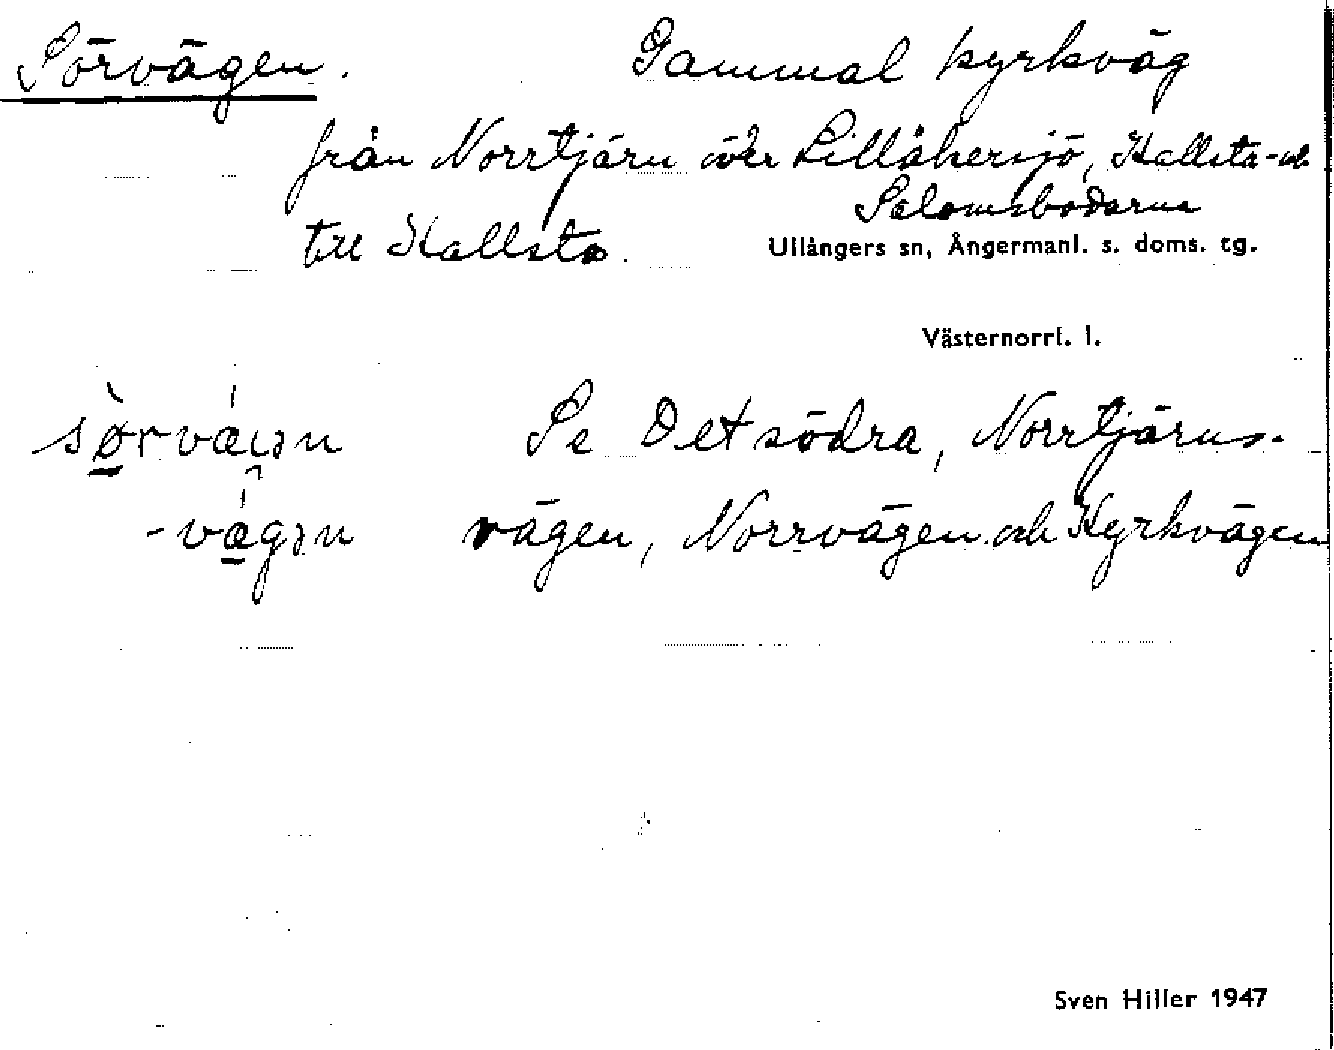 Sörvägen. Gammal kyrkväg
från Norrtjärn över Lillåhersjö, Hallsta- och
Salomsbodarna
till Hallsta.
Ullångers sn, Ångermanl. s. doms. tg.
Västernorrl. l.
Se Det södra, Norrtjärns-
vägen, Norrvägen och Kyrkvägen
Sven Hiller 1947